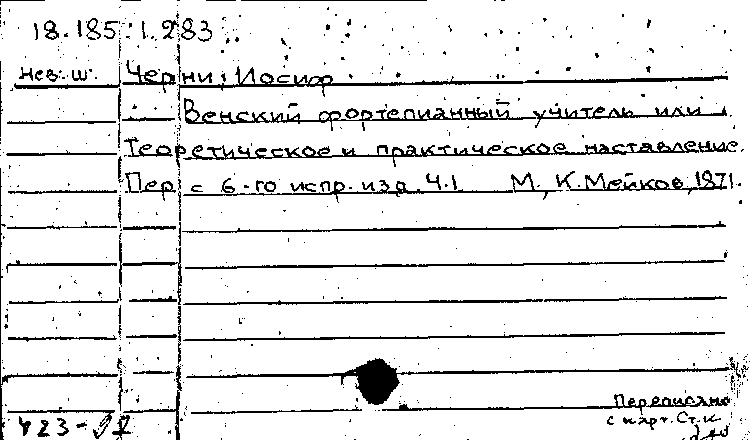 18.185.1.283
Нев. ш. Черни, Иосиф
Венский фортепианный учитель или
Теоретическое и практическое наставление.
Пер. с 6-го испр. изд. Ч.1 М., К. Мейков, 1871.
Переписано
с карт. Ст. к.